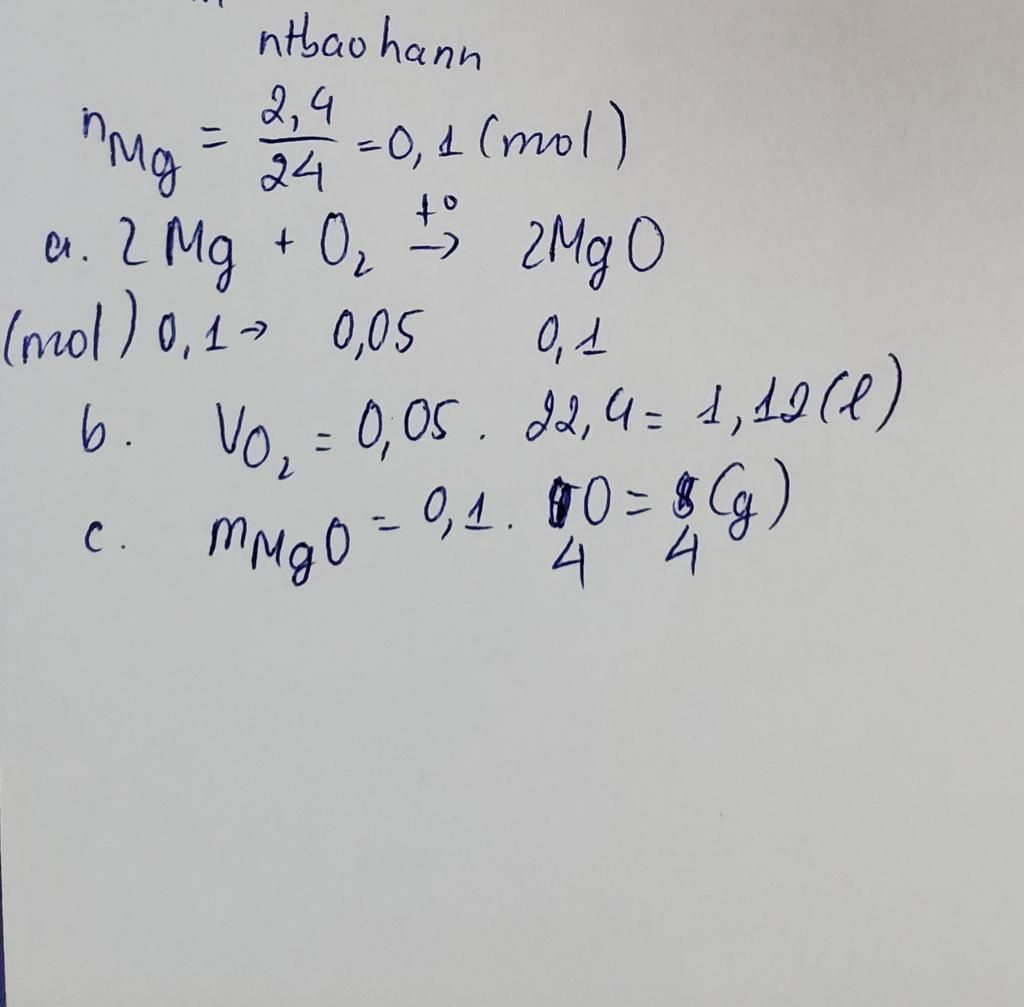 ntbaohann
nMg = 2,4/24 = 0,1 (mol)
a. 2Mg + O₂ t°→ 2MgO
(mol) 0,1 → 0,05 0,1
b. VO₂ = 0,05 . 22,4 = 1,12 (l)
c. mMgO = 0,1 . 40 = 4 (g)